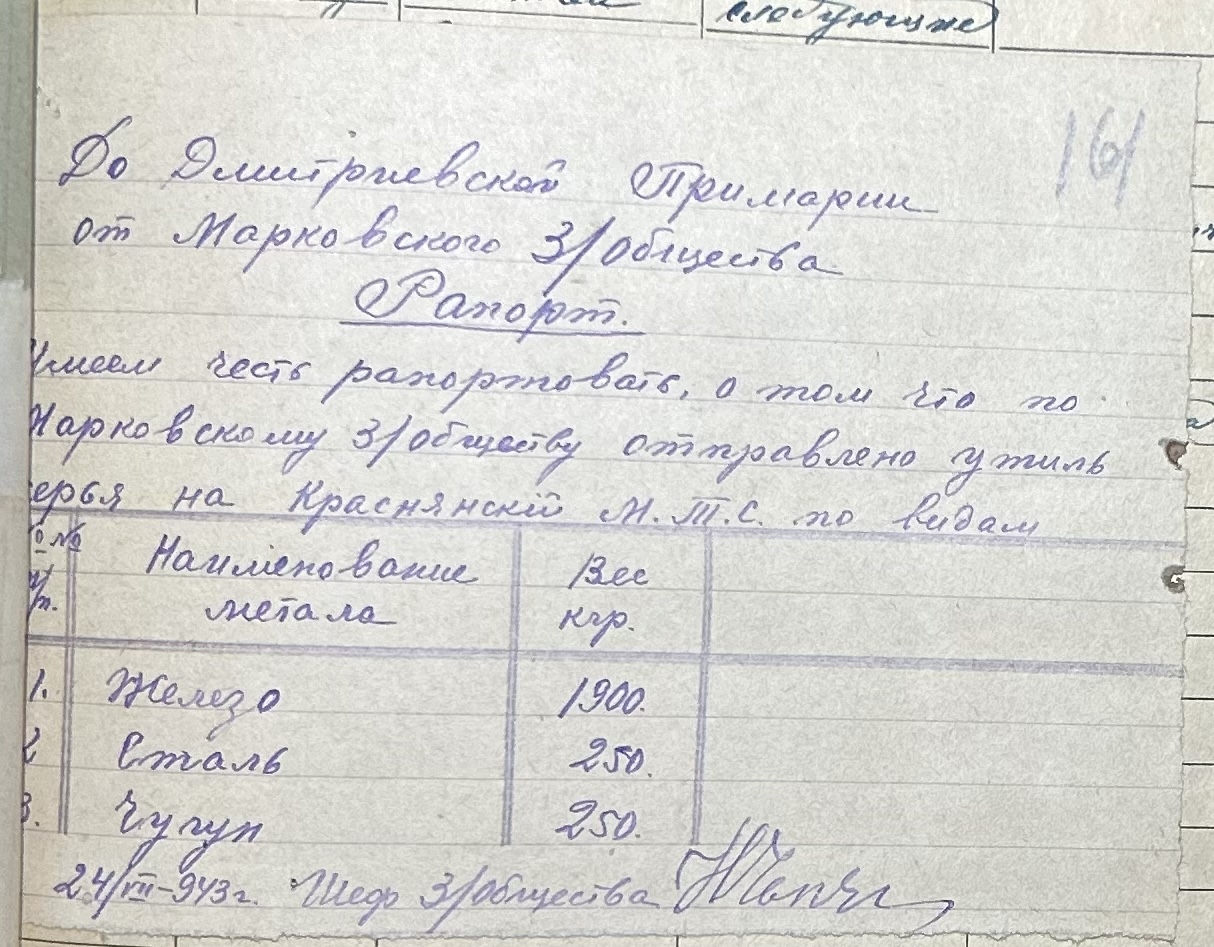 следующие
161
До Дмитриевской Примарии
от Марковского З/общества
Рапорт.
Имеем честь рапортовать, о том что по
Марковскому З/обществу отправлено утиль
серья на Краснянскій М.Т.С. по видам
№№ п/п. Наименование метала Вес кгр.
1. Железо 1900.
2 Сталь 250.
3. Чугун 250.
24/VII-943г. Шеф З/общества